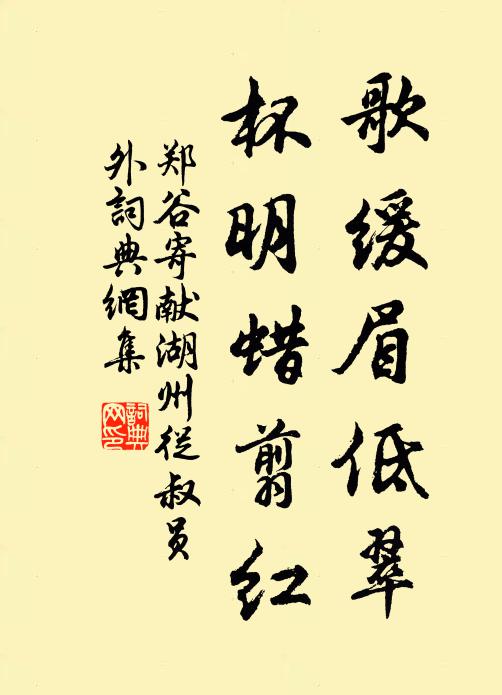 歌缓眉低翠
杯明蜡翦红
郑谷寄献湖州从叔员
外词典網集
詞典
网印